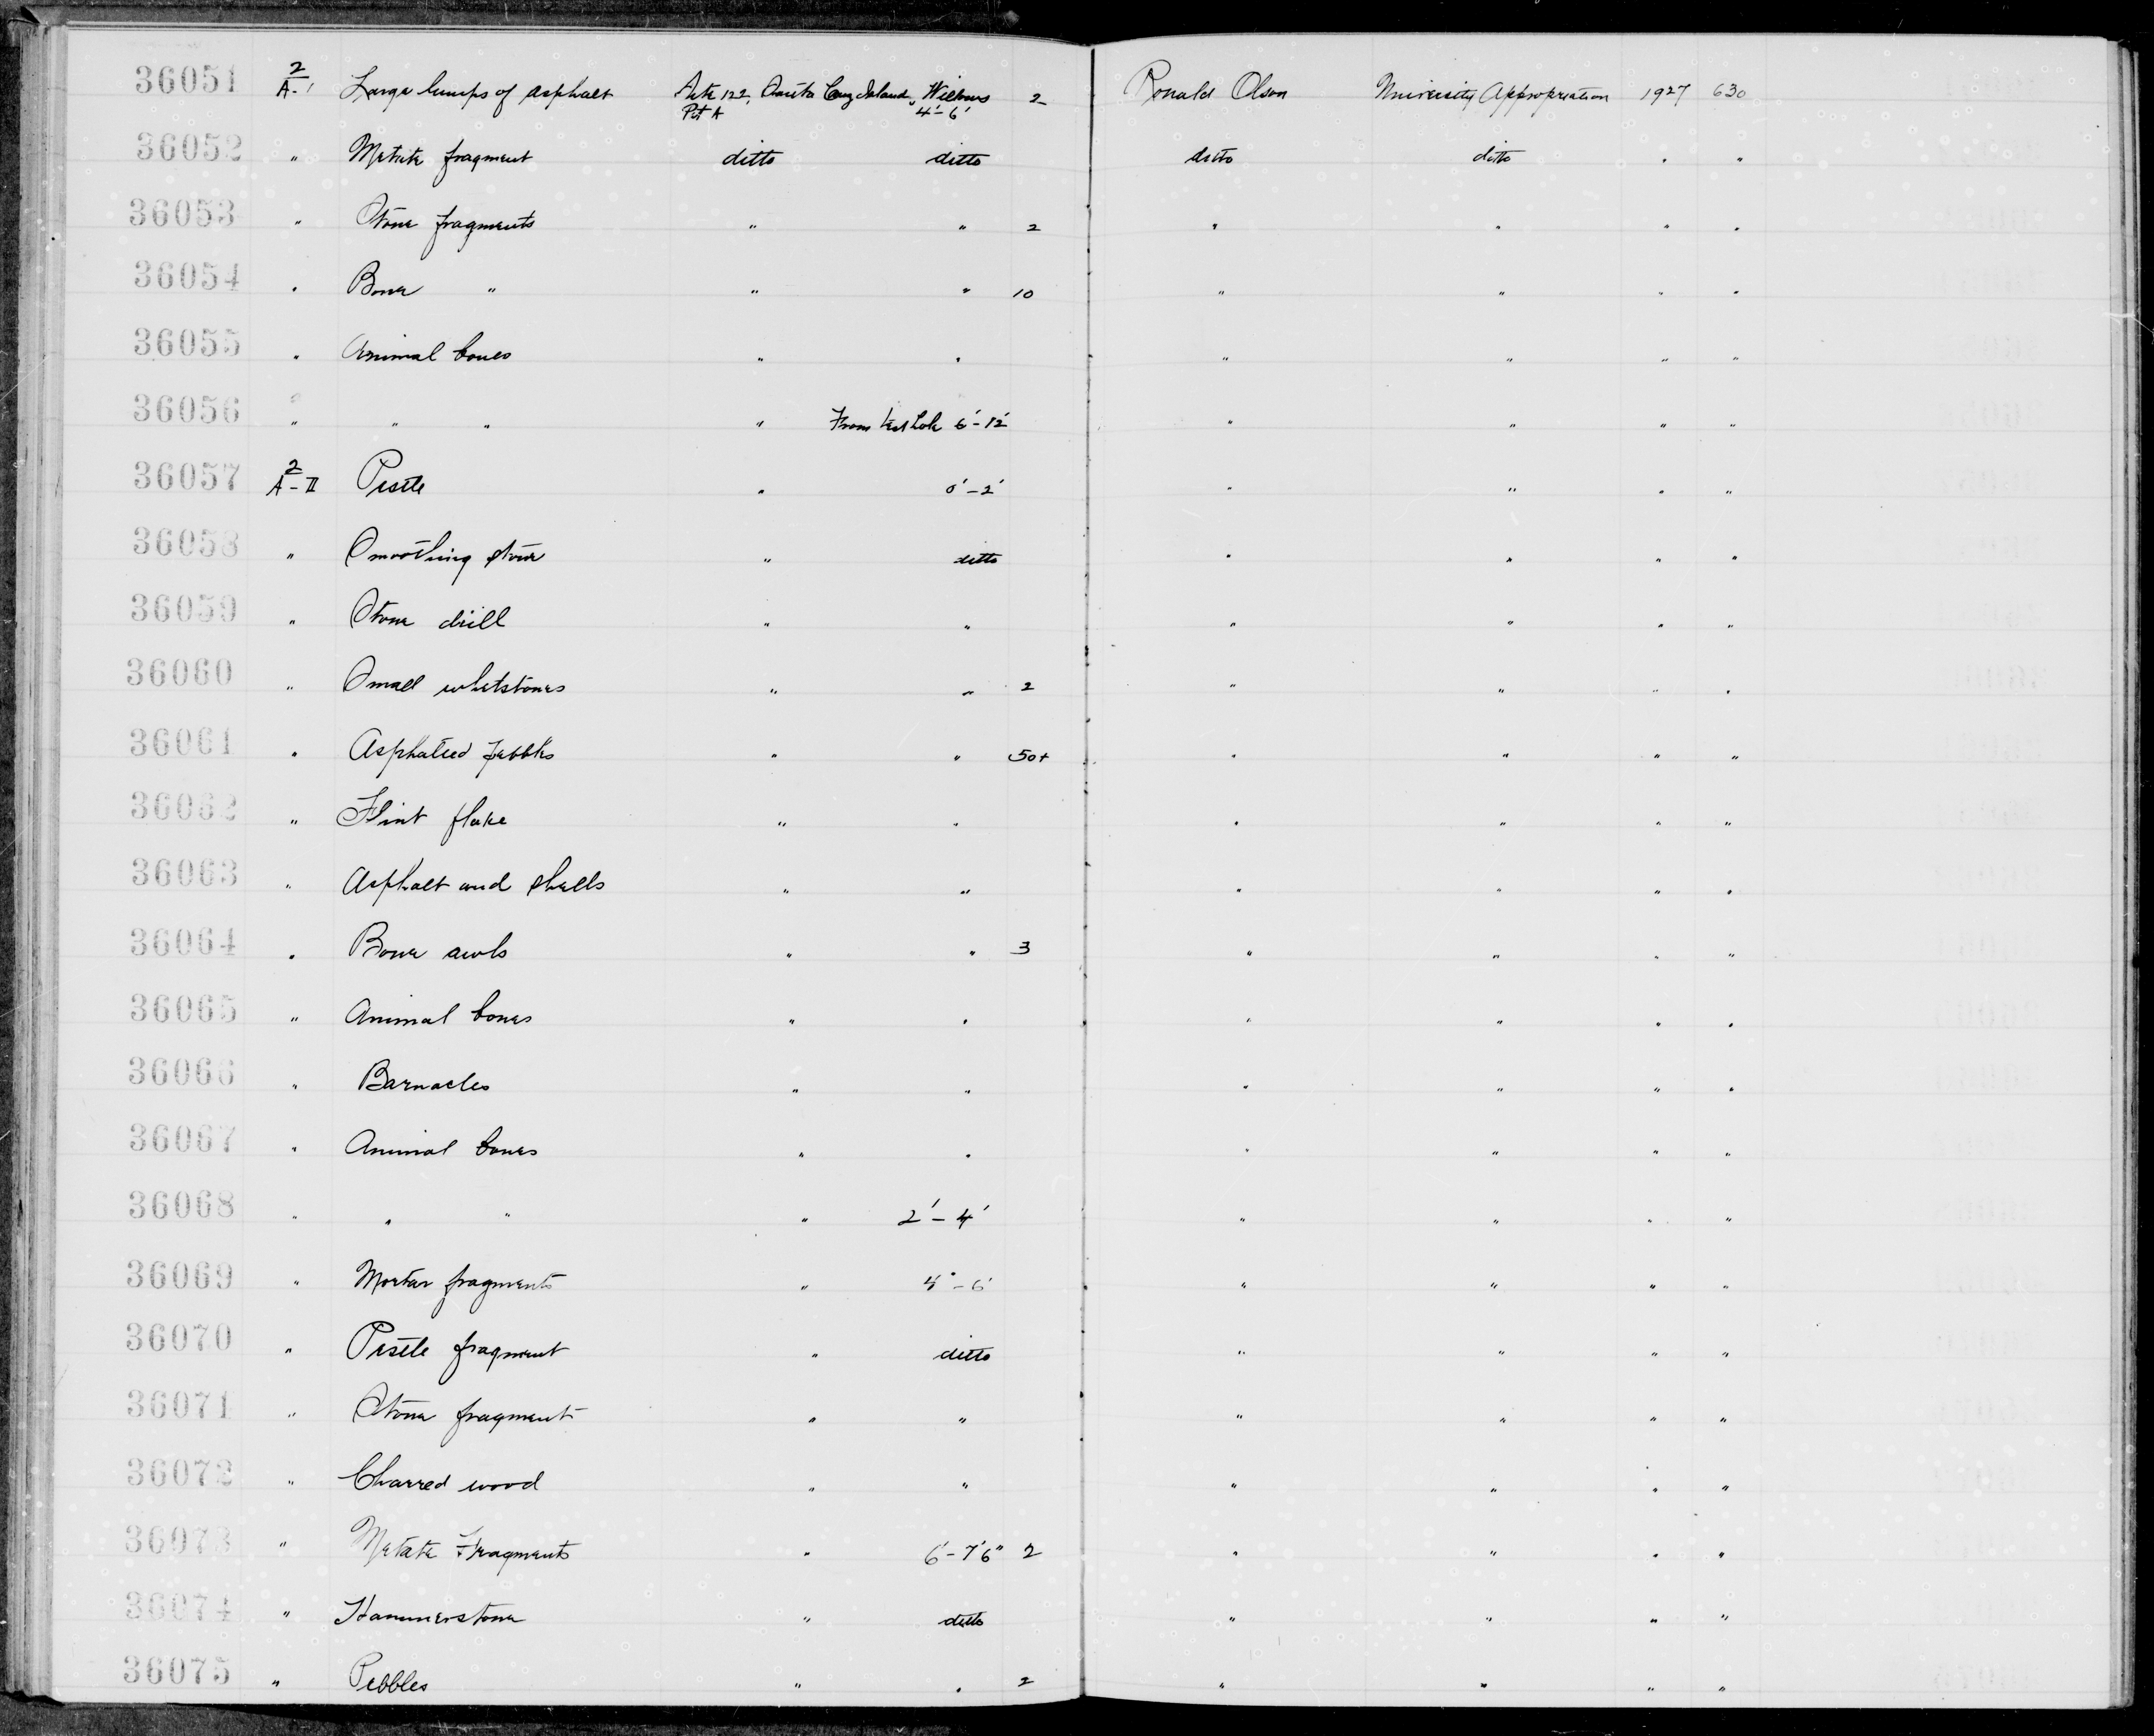 36051 2/A-1 Large lumps of asphalt Site 122, Santa Cruz Island, Wilburs 2 Ronald Olson University Appropriation 1927 630
Pit A 4'-6'
36052 " Metate fragment ditto ditto ditto ditto " "
36053 " Stone fragments " " 2 " " " "
36054 " Bone " " " 10 " " " "
36055 " Animal bones " " " " " "
36056 " " " " From test hole 6'-12' " " " "
36057 2/A-II Pestle " 0'-2' " " " "
36058 " Smoothing stone " ditto " " " "
36059 " Stone drill " " " " " "
36060 " Small whetstones " " 2 " " " "
36061 " Asphalted pebbles " " 50+ " " " "
36062 " Flint flake " " " " " "
36063 " Asphalt and shells " " " " " "
36064 " Bone awls " " 3 " " " "
36065 " Animal bones " " " " " "
36066 " Barnacles " " " " " "
36067 " Animal bones " " " " " "
36068 " " " " 2'-4' " " " "
36069 " Mortar fragments " 4'-6' " " " "
36070 " Pestle fragment " ditto " " " "
36071 " Stone fragment " " " " " "
36072 " Charred wood " " " " " "
36073 " Metate Fragments " 6'-7'6" 2 " " " "
36074 " Hammerstone " ditto " " " "
36075 " Pebbles " " 2 " " " "